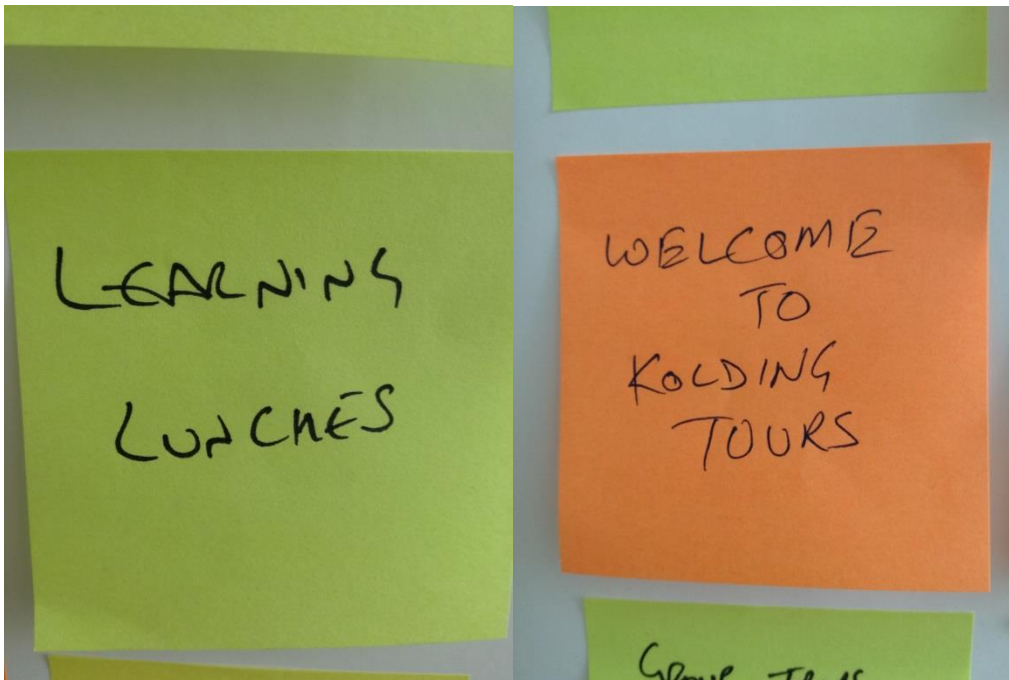 LEARNING
LUNCHES
WELCOME
TO
KOLDING
TOURS
GROUP